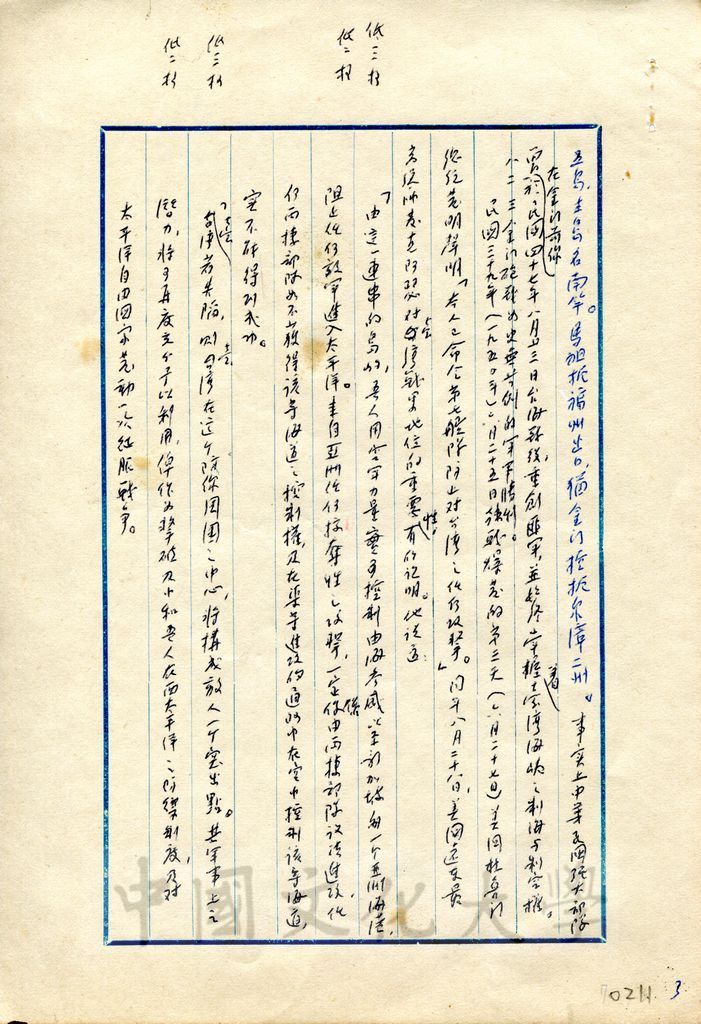 低三格
低二格
低三格
低二格
五島,主島名南竿。馬祖扼福州出口,猶金門控扼泉漳二州。事實上中華民國強大部隊
在金門前線
曾於民國四十七年八月廿三日台海戰役,重創匪軍,並始終掌握着臺灣海峽之制海與制空權。
八二三金門砲戰為史無前例的軍事勝利。
民國三十九年(一九五〇年)六月二十五日韓戰爆發的第三天(六月二十七日)美國杜魯門
總統發表聲明「本人已命令第七艦隊防止對台灣之任何攻擊。」同年八月二十八日,美國遠東最
高統帥麥克阿瑟必對臺灣戰略地位的重要性,有所說明。他說道:
「由這一連串的島嶼,吾人用空軍力量實可控制由海參威以至新加坡每一個亞洲海港,
阻止任何敵軍進入太平洋。來自亞洲任何掠奪性之攻擊,一定係由兩棲部隊設法進攻,任
何兩棲部隊如不獲得該等海道之控制權,及在渠等進攻的通路中在空中控制該等海道,
定不能得到成功。
「臺灣若失陷,則臺灣在這個防線周圍之中心,將構成敵人一個突出點。其軍事上之
潛力,將可再度充分予以利用,俾作為擊破及中和吾人在西太平洋之防禦制度,及對
太平洋自由國家發動一次征服戰爭。
中國文化大學
70211 3